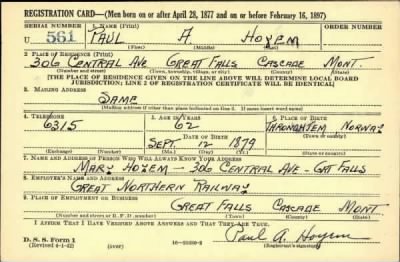 REGISTRATION CARD—(Men born on or after April 28, 1877 and on or before February 16, 1897)
SERIAL NUMBER 1. NAME (Print) ORDER NUMBER
U 561 PAUL A HOYEM
(First) (Middle) (Last)
2. PLACE OF RESIDENCE (Print)
306 CENTRAL AVE GREAT FALLS CASCADE MONT.
(Number and street) (Town, township, village, or city) (County) (State)
[THE PLACE OF RESIDENCE GIVEN ON THE LINE ABOVE WILL DETERMINE LOCAL BOARD
JURISDICTION; LINE 2 OF REGISTRATION CERTIFICATE WILL BE IDENTICAL]
3. MAILING ADDRESS
SAME
[Mailing address if other than place indicated on line 2. If same insert word same]
4. TELEPHONE 5. AGE IN YEARS 6. PLACE OF BIRTH
6315 62
DATE OF BIRTH (Town or county)
SEPT. 12 1879 NORWAY
(Exchange) (Number) (Mo.) (Day) (Yr.) (State or country)
7. NAME AND ADDRESS OF PERSON WHO WILL ALWAYS KNOW YOUR ADDRESS
MARY HOYEM — 306 CENTRAL AVE - GRT FALLS
8. EMPLOYER'S NAME AND ADDRESS
GREAT NORTHERN RAILWAY
9. PLACE OF EMPLOYMENT OR BUSINESS
GREAT FALLS CASCADE MONT
(Number and street or R. F. D. number) (Town) (County) (State)
I AFFIRM THAT I HAVE VERIFIED ABOVE ANSWERS AND THAT THEY ARE TRUE.
D. S. S. Form 1
(Revised 4-1-42) (over) Paul A. Hoyem
(Registrant's signature)